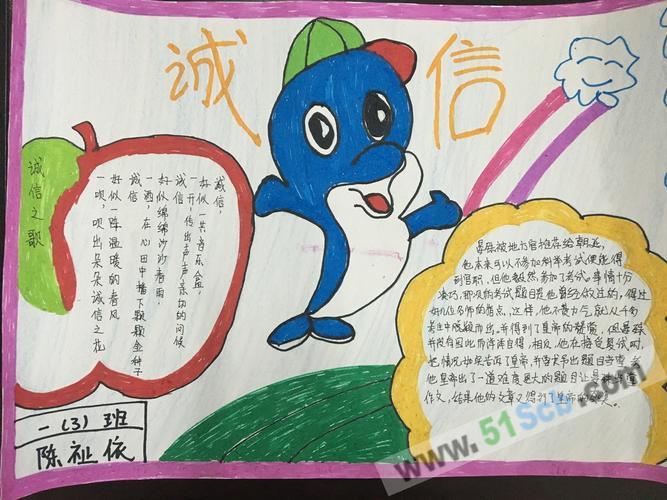 诚信
诚信之歌
诚信,
好似一共音乐盒,
一开,传出声声亲切的问候
诚信
好似绵绵沙沙春雨,
一洒,在心田中播下颗颗金种子
诚信
好似一阵温暖的春风
一唤,唤出朵朵诚信之花
晏殊被地方官推荐给朝廷,
他本来可以不参加科举考试便能得
到官职,但他毅然参加了考试。事情十分
凑巧,那次的考试题目是他曾经做过的,得过
好几位名师的指点,这样,他不费力气,就从千多
考生中脱颖而出,并得到了皇帝的赞赏,但晏殊
并没有因此而洋洋自得,相反,他在接受复试时,
把情况如实告诉了皇帝,并要求另出题目,当堂考
他皇帝出了一道难度更大的题目让晏殊当堂
作文,结果他的文章又得到了皇帝的
一(3)班
陈祉依
www.51Scb.com